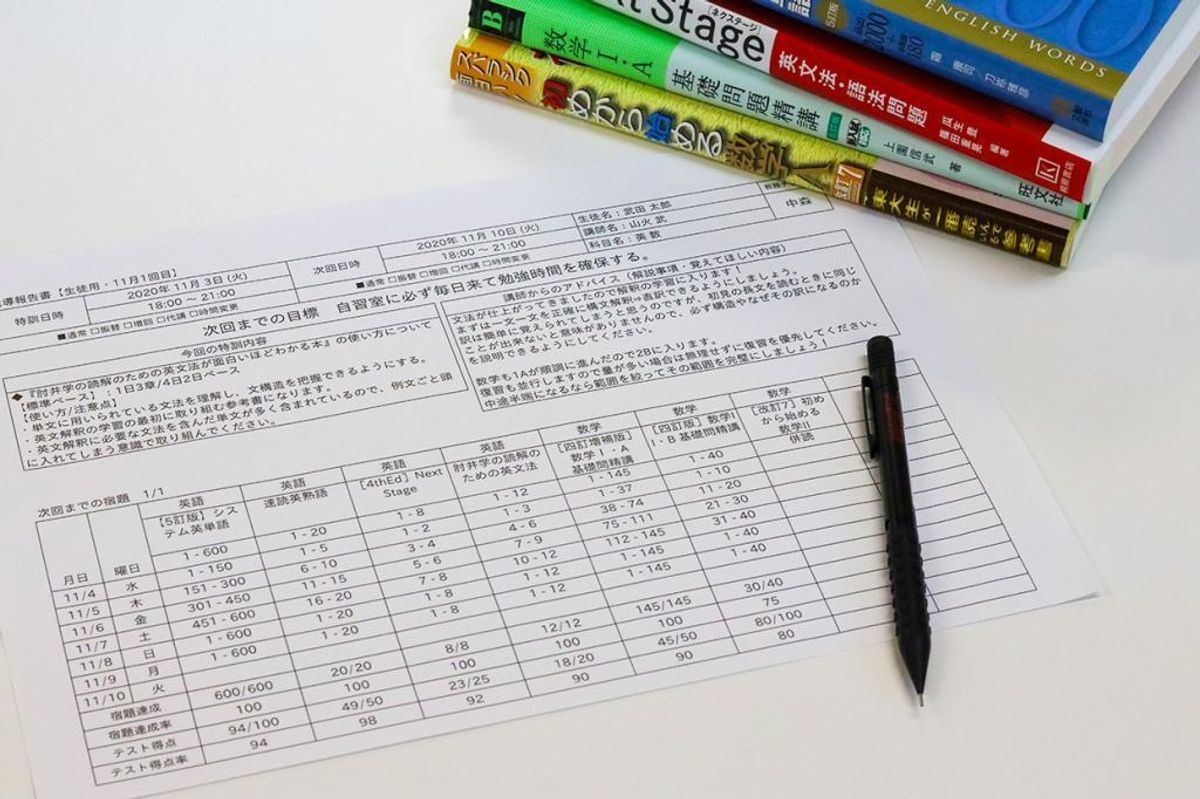 ENGLISH WORDS
Next Stage
[ネクステージ]
英文法・語法問題
瓜生 豊
篠田重晃 編著
K
B
数学 I・A
基礎問題精講
上園信武 著
旺文社
初めから始める数学A
改訂7
東大生が一番読んでいる参考書
導報告書【生徒用・11月1回目】
特訓日時 2020年 11月 3日 (火) 次回日時 2020年 11月 10日 (火) 生徒名:武田 太郎
18:00 ~ 21:00 18:00 ~ 21:00 講師名:山火 武 中森
■通常 □振替 □増回 □代講 □時間変更 ■通常 □振替 □増回 □代講 □時間変更 科目名:英 数
次回までの目標 自習室に必ず毎日来て勉強時間を確保する。
今回の特訓内容
◆『肘井学の読解のための英文法が面白いほどわかる本』の使い方について
【標準ペース】:1日3章/4日2日ペース
【使い方/注意点】
・単文に用いられている文法を理解し、文構造を把握できるようにする。
・英文解釈の学習の最初に取り組む参考書になります。
・英文解釈に必要な文法を含んだ単文が多く含まれているので、例文ごと頭
に入れてしまう意識で取り組んでください。
講師からのアドバイス(解説事項・覚えてほしい内容)
文法が仕上がってきましたので解釈の学習に入ります!
まずは一文一文を正確に構文解釈⇒直訳できるようにしましょう。
訳は簡単に覚えられてしまうと思うのですが、初見の長文を読むときに同じ
ことが出来ないと意味がありませんので、必ず構造やなぜその訳になるのか
を説明できるようにしてください。
数学も1Aが順調に進んだので2Bに入ります。
復習も並行しますので量が多い場合は無理せずに復習を優先してください。
中途半端になるなら範囲を絞ってその範囲を完璧にしましょう!
次回までの宿題 1/1
月日 曜日 英語 英語 英語 英語 数学 数学 数学
【5訂版】システム英単語 速読英熟語 [4thEd] Next Stage 肘井学の読解のための英文法 [四訂増補版] 数学 I・A 基礎問精講 [四訂版] 数学II・B 基礎問精講 [改訂7] 初めから始める数学II
1 - 600 1 - 20 1 - 8 1 - 12 1 - 145 1 - 40 併読
11/4 水 1 - 150 1 - 5 1 - 2 1 - 3 1 - 37 1 - 10
11/5 木 151 - 300 6 - 10 3 - 4 4 - 6 38 - 74 11 - 20
11/6 金 301 - 450 11 - 15 5 - 6 7 - 9 75 - 111 21 - 30
11/7 土 451 - 600 16 - 20 7 - 8 10 - 12 112 - 145 31 - 40
11/8 日 1 - 600 1 - 20 1 - 8 1 - 12 1 - 145 1 - 40
11/9 月 1 - 600 1 - 20 1 - 8 1 - 12 1 - 145 1 - 40
11/10 火
宿題達成 600/600 20/20 8/8 12/12 145/145 30/40
宿題達成率 100 100 100 100 100 75
テスト得点 94/100 49/50 23/25 18/20 45/50 80/100
テスト得点率 94 98 92 90 90 80